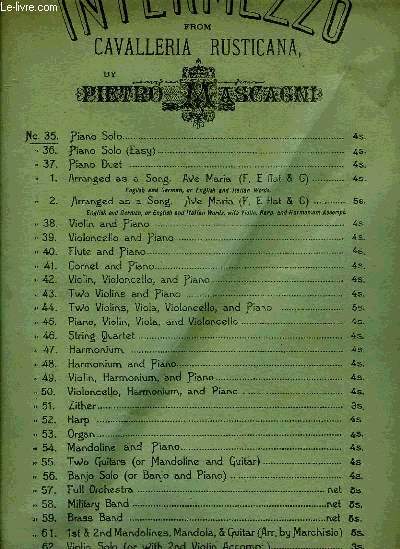 Le-livre.com
INTERMEZZO
FROM
CAVALLERIA RUSTICANA,
BY
PIETRO MASCAGNI
No. 35. Piano Solo 4s.
" 36. Piano Solo (Easy) 4s.
" 37. Piano Duet 4s.
" 1. Arranged as a Song. Ave Maria (F, E flat & G) 4s.
English and German, or English and Italian Words.
" 2. Arranged as a Song. Ave Maria (F, E flat & G) 5s.
English and German, or English and Italian Words, with Violin, Harp, and Harmonium Accompt.
" 38. Violin and Piano 4s.
" 39. Violoncello and Piano 4s.
" 40. Flute and Piano 4s.
" 41. Cornet and Piano 4s.
" 42. Violin, Violoncello, and Piano 4s.
" 43. Two Violins and Piano 4s.
" 44. Two Violins, Viola, Violoncello, and Piano 5s.
" 45. Piano, Violin, Viola, and Violoncello 4s.
" 46. String Quartet 4s.
" 47. Harmonium 4s.
" 48. Harmonium and Piano 4s.
" 49. Violin, Harmonium, and Piano 4s.
" 50. Violoncello, Harmonium, and Piano 4s.
" 51. Zither 3s.
" 52. Harp 4s.
" 53. Organ 4s.
" 54. Mandoline and Piano 4s.
" 55. Two Guitars (or Mandoline and Guitar) 4s.
" 56. Banjo Solo (or Banjo and Piano) 4s.
" 57. Full Orchestra net 5s.
" 58. Military Band net 5s.
" 59. Brass Band net 5s.
" 61. 1st & 2nd Mandolines, Mandola, & Guitar (Arr. by Marchisio) 5s.
62. Violin Solo (or with 2nd Violin Accompt.) 3s.